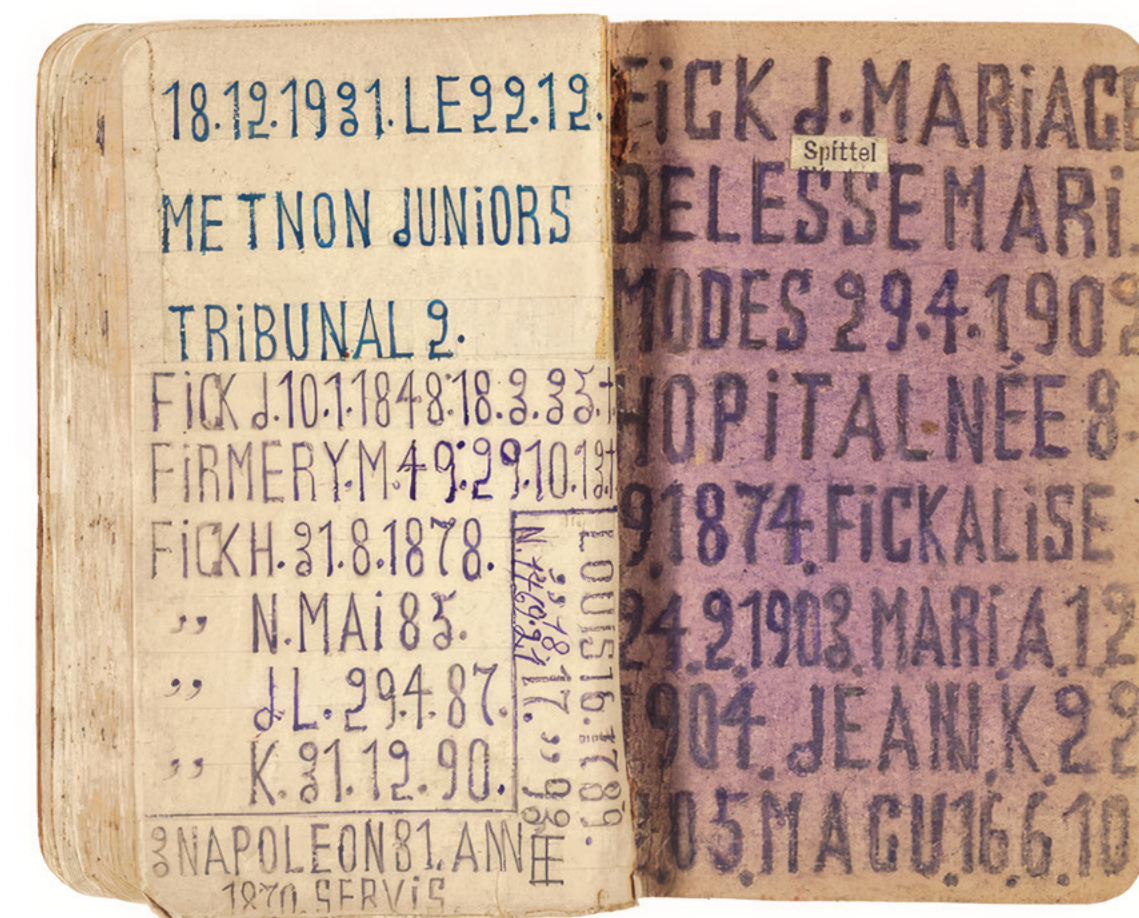 18.12.1931.LE22.12.
METNON JUNiORS
TRiBUNAL 2.
FiCK J.10.1.1848.18.3.35.†
FiRMERY.M.49.29.10.13†
FiCKH.31.8.1878.
,, N.MAi 85.
,, JL.29.4.87.
,, K.31.12.90.
LOUIS 16.1789.
3NAPOLEON81.ANN
1870.SERViS
FiCK J.MARiAGE
Spittel
DELESSE MARi.
MODES 29.4.1902
HOPiTAL NÉE 8.
9.1874.FiCKALiSE
24.2.1903.MARi.A.12
904.JEAN.K.22
05.MAGU.16.6.10